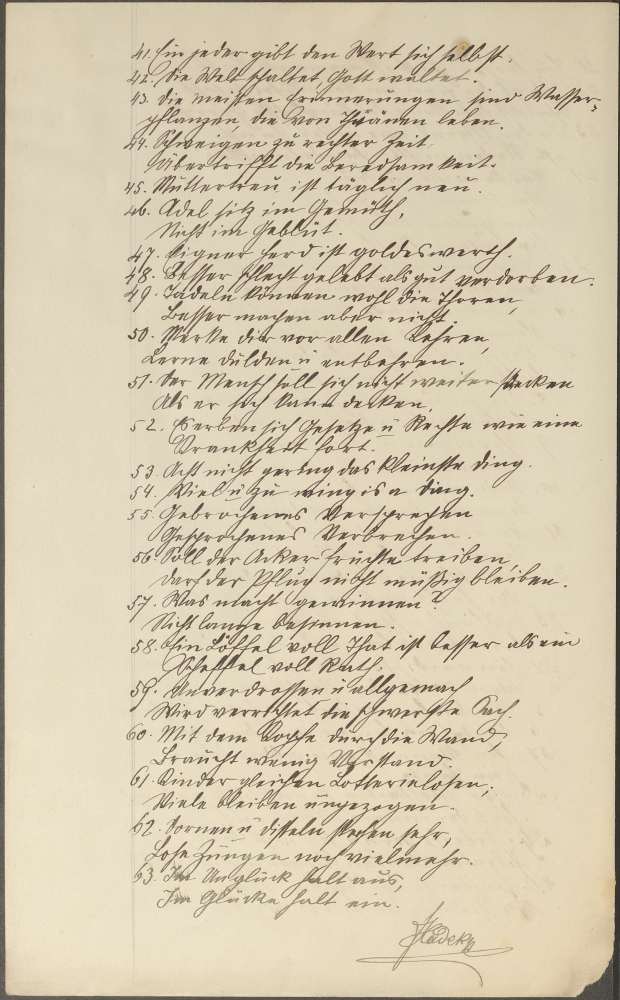 41. Ein jeder gibt den Wert sich selbst.
42. Die Welt schaltet, Gott waltet.
43. Die meisten Erinnerungen sind Wasser-
pflanzen, die von Thränen leben.
44. Schweigen zu rechter Zeit
Übertrifft die Beredsamkeit.
45. Muttertreu ist täglich neu.
46. Adel sitz im Gemüth,
Nicht im Geblüt.
47. Eigner Herd ist goldeswerth.
48. Besser schlecht gelebt als gut verdorben.
49. Tadeln können wohl die Thoren,
Besser machen aber nicht.
50. Merke dir vor allen Lehren,
Lerne dulden u entbehren.
51. Der Mensch soll sich nicht weiter strecken
Als er sich kann decken.
52. Es erben sich Gesetze u Rechte wie eine
Krankheit fort.
53. Acht nicht gering das kleinste Ding.
54. Viel u zu wing is a Ding.
55. Gebrochenes Versprechen
Gesprochenes Verbrechen.
56. Soll der Acker Früchte treiben,
darf der Pflug nicht müßig bleiben.
57. Was macht gewinnen?
Nicht lange besinnen.
58. Ein Löffel voll That ist besser als ein
Scheffel voll Rath.
59. Unverdrossen u allgemach
Wird verrichtet die schwerste Sach.
60. Mit dem Kopfe durch die Wand,
Braucht wenig Verstand.
61. Kinder gleichen Lotterielosen;
Viele bleiben ungezogen.
62. Dornen u Disteln stechen sehr,
Lose Zungen noch vielmehr.
63. Im Unglück halt aus,
Im Glücke halt ein.